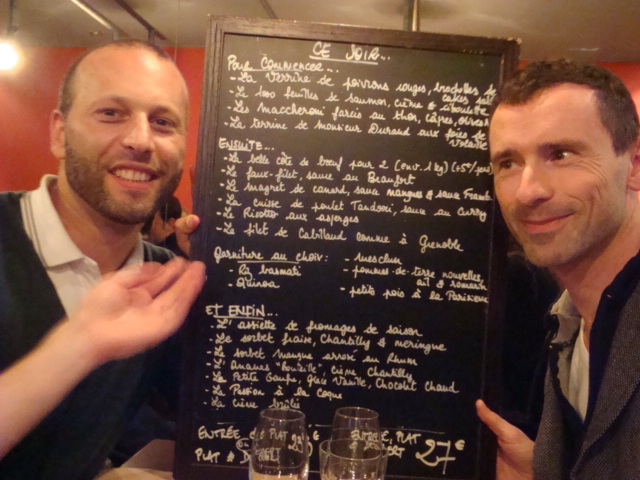 CE SOIR...
POUR COMMENCER...
- La verrine de poivrons rouges, brochettes de
cakes salés
- Le 1000 feuilles de saumon, crème & ciboulette
- Les Maccheroni farcis au thon, câpres, olives
- La terrine de Monsieur Durand aux foies de
volaille
ENSUITE...
- La belle côte de boeuf pour 2 (env. 1 kg) (+5€/pers)
- Le faux-filet, sauce au Beaufort
- Le magret de canard, sauce mangues & sauce
- La cuisse de poulet Tandoori, sauce au curry
- Le Risotto aux asperges
- Le filet de Cabillaud comme à Grenoble
Garniture au choix: - mesclun
- Riz basmati
- pommes de terre nouvelles,
ail & romarin
- Quinoa
- petits pois à la Parisienne
ET ENFIN...
- L'assiette de fromages de saison
- Le sorbet fraise, Chantilly & meringue
- Le sorbet mangue arrosé au Rhum
- L'Ananas "Routeille", crème Chantilly
- La Petite Gaufre, glace Vanille, Chocolat Chaud
- La Passion à la coque
- La crème brûlée
ENTRÉE & PLAT
PLAT & PLAT
27€